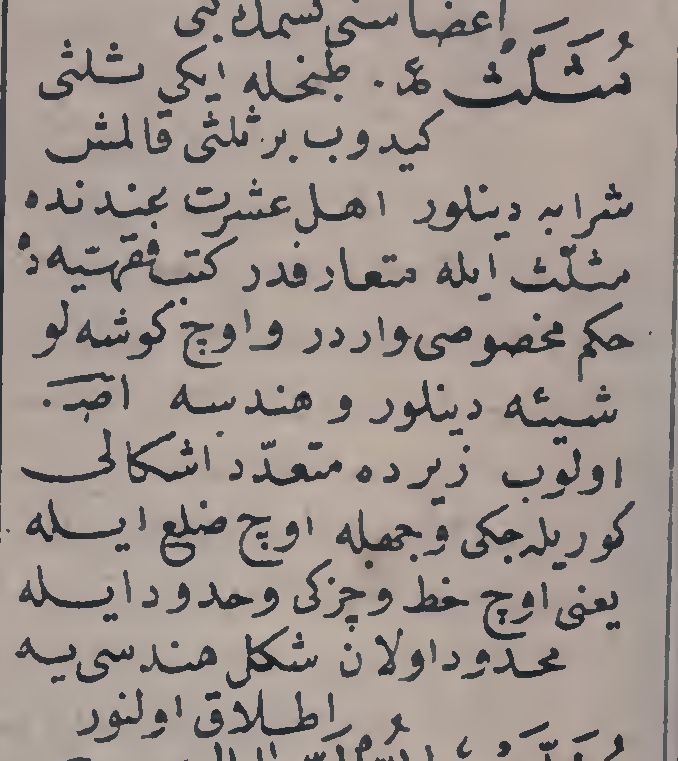 اعضاسنی کسمك كبی
مُثَلَّثٌ . طبخله ایکی ثلثی
کیدوب بر ثلثی قالمش
شرابه دینلور اهل عشرت عندنده
مثلّث ایله متعارفدر کتب فقهیّه ده
حکم مخصوصی واردر و اوچ کوشه لو
شیئه دینلور و هندسه
اولوب زیرده متعدّد اشکالی
کوریله جکی وجهله اوچ ضلع ایله
یعنی اوچ خط و چزکی و حدود ایله
محدود اولان شکل هندسی یه
اطلاق اولنور